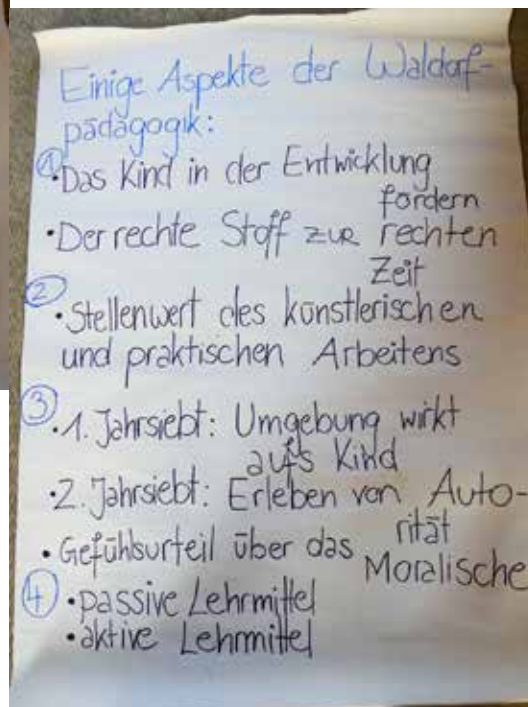 Einige Aspekte der Waldorf-
pädagogik:
① • Das Kind in der Entwicklung
fördern
• Der rechte Stoff zur rechten
Zeit
② • Stellenwert des künstlerischen
und praktischen Arbeitens
③ • 1. Jahrsiebt: Umgebung wirkt
aufs Kind
• 2. Jahrsiebt: Erleben von Auto-
rität
• Gefühlsurteil über das
Moralische
④ • passive Lehrmittel
• aktive Lehrmittel